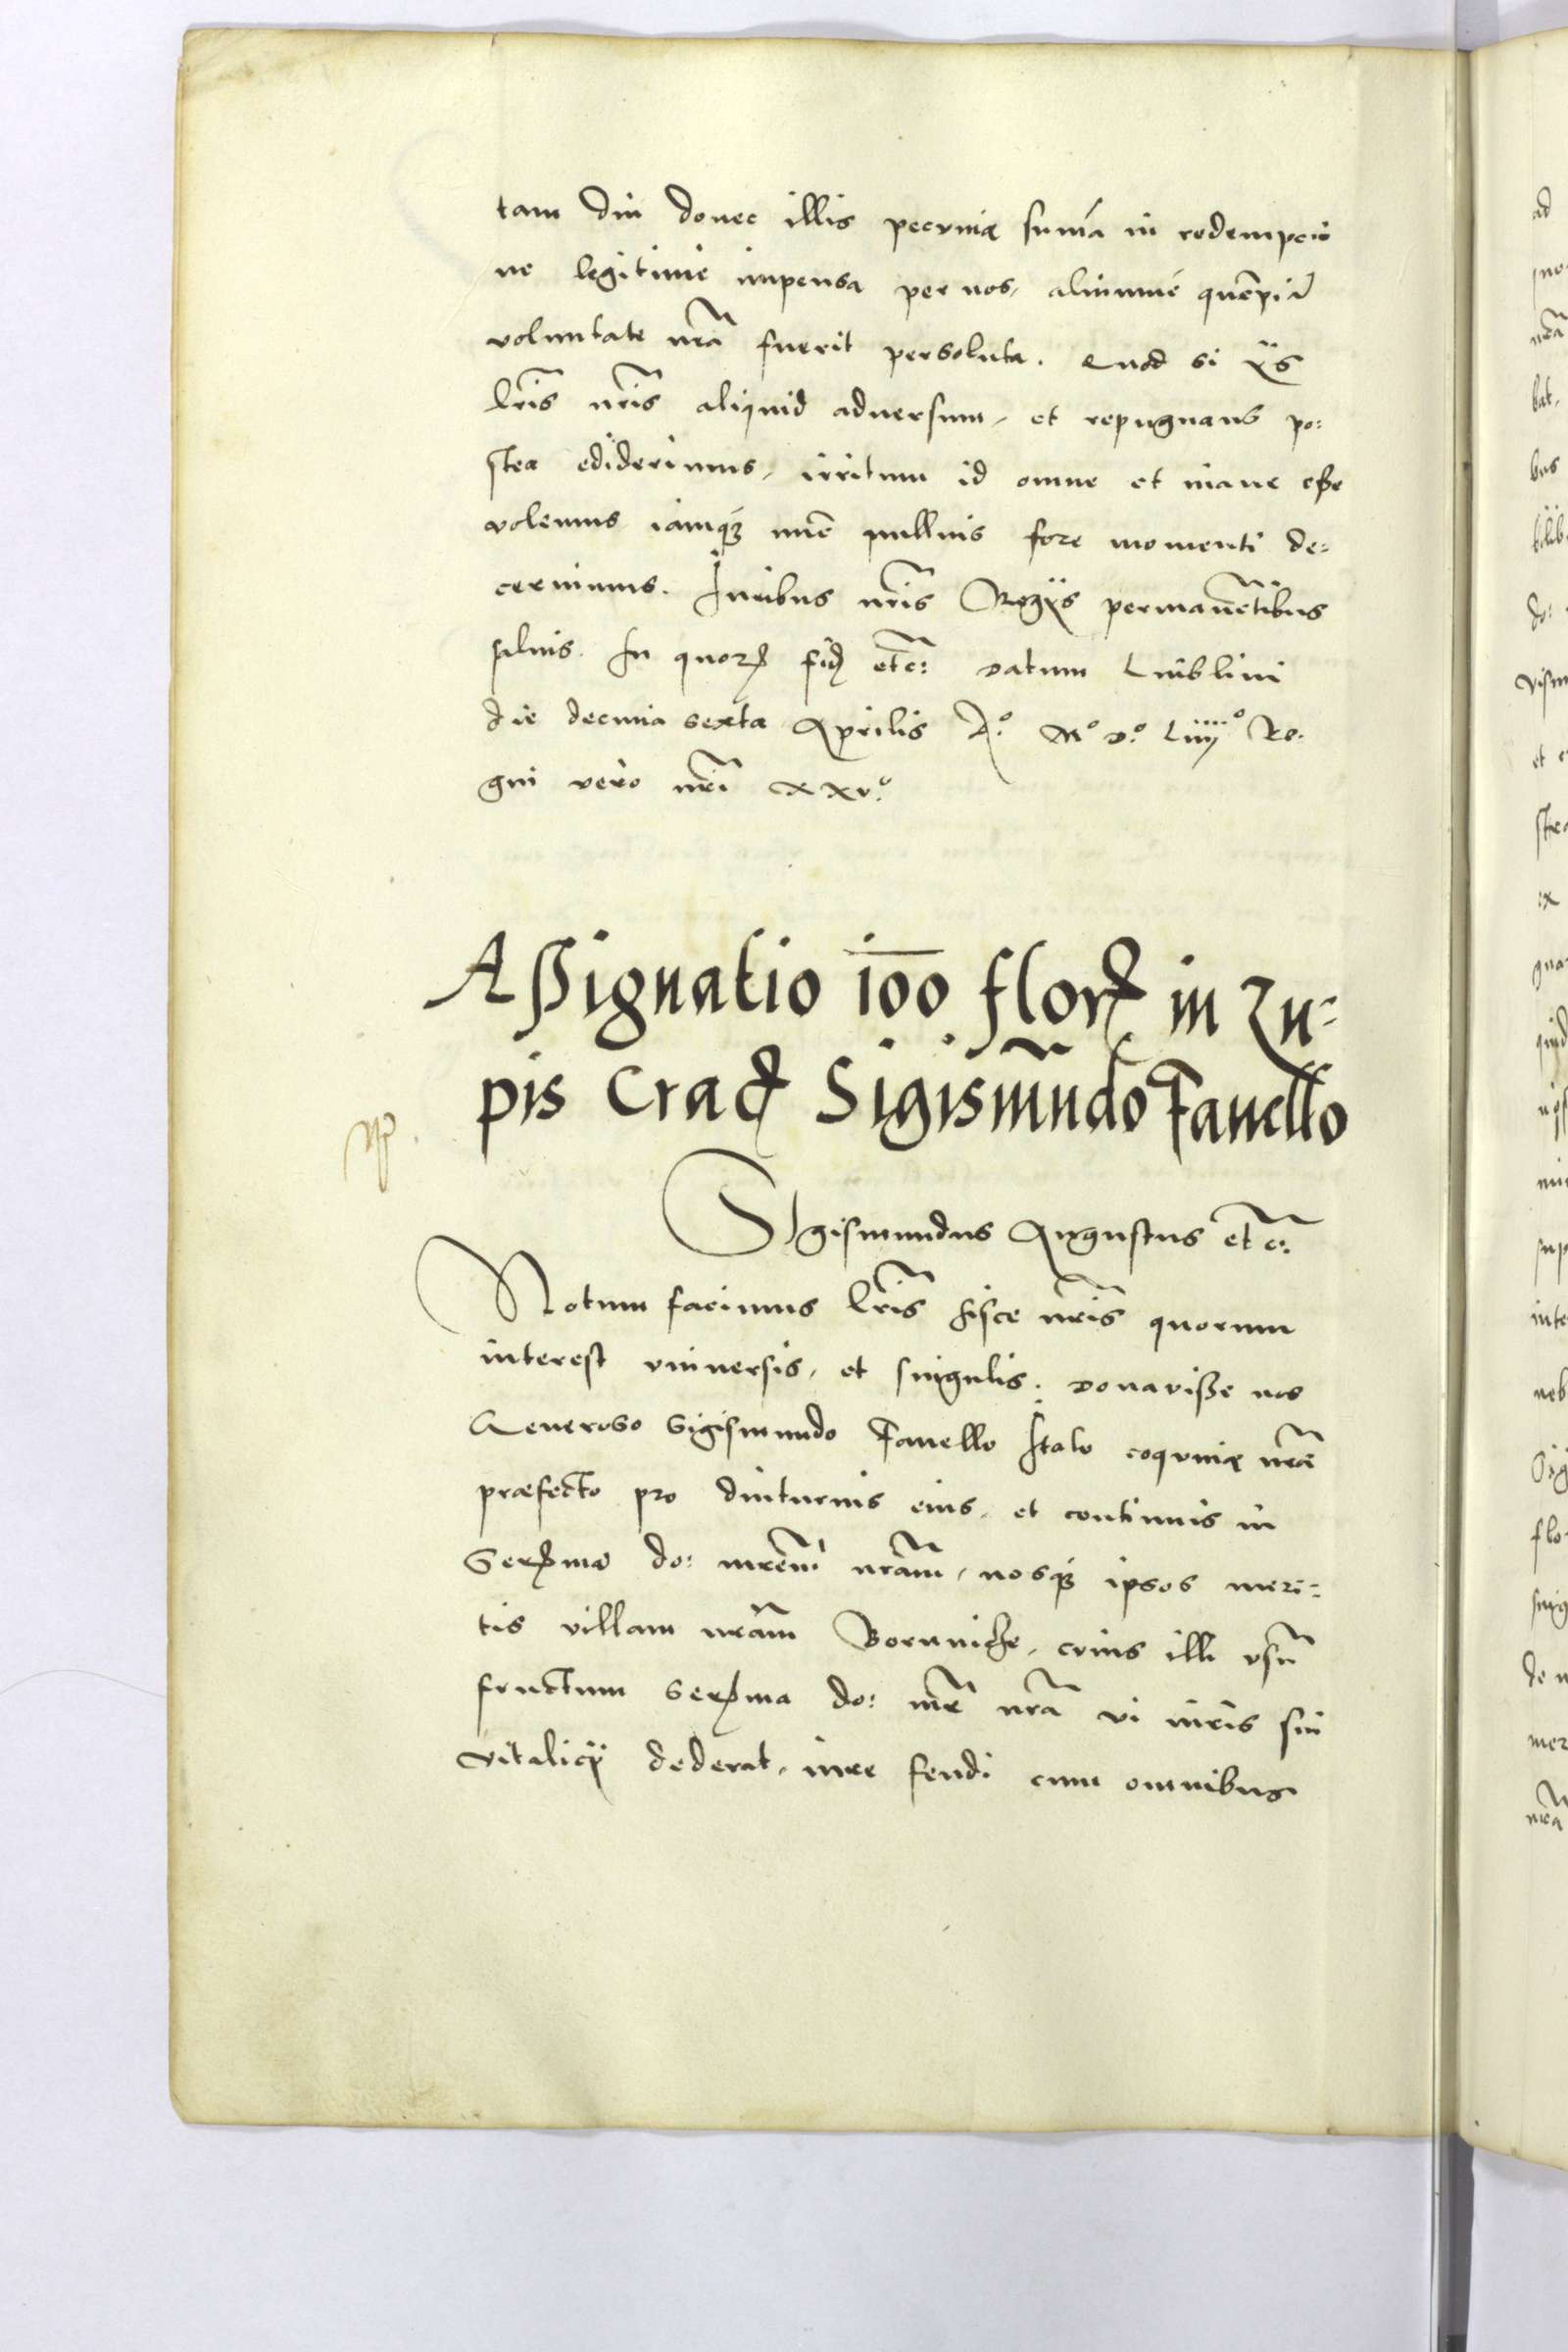 tam diu donec illis pecuniæ sum̄a in redempcio
ne legitime impensa per nos, aliumue quēpiā
voluntate nrā fuerit persoluta. Quod si ijs
lrīs nrīs aliquid aduersum, et repugnans po:
stea ediderimus, irritum id omne et inane esse
volemus iamq3 nunc nullius fore momenti de:
cernimus. Iuribus nrīs Regijs permanētibus
saluis. In quorꝝ fidē etc: Datum Liublini
die decima sexta Aprilis Aº. Mº Dº. Liiijº Re.
gni vero nrī xxvº.
Assignatio 100 florꝝ in Zu:
pis Crac̄ Sigismūdo Fanello
Sigismundus Augustus etc:
Notum facimus lrīs hisce nrīs quorum
interest vniuersis, et singulis. Donavisse nos
Generoso Sigismundo Fanello Italo coquinæ nrǣ
præfecto pro diuturnis eius, et continuis in
Serꝝma do: mrēm nrām, nosq3 ipsos meri:
tis villam nrām Boruniche, cuius illi vsū
fructum Serꝝma do: mr̄ nrā vi iuris sui
vitalicij dederat, iure feudi cum omnibus